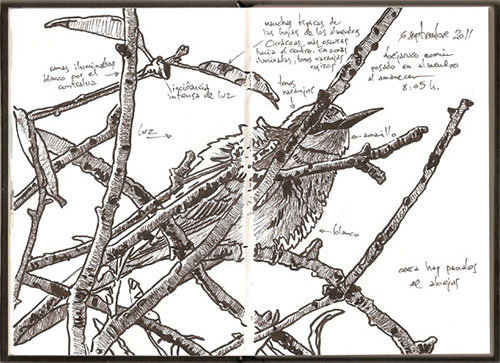 manchas típicas de
las hojas de los almendros
Ocráceas, más oscuras
hacia el centro. En zonas
iluminadas, tonos naranjas
rojizos
6 septiembre 2011
abejaruco común
posado en el almendro
al amanecer
8:05 h.
ramas iluminadas
blanco por el
contraluz
incidencia
intensa de luz
tonos
naranjas
luz
amarillo
blanco
cerca hay panales
de abejas